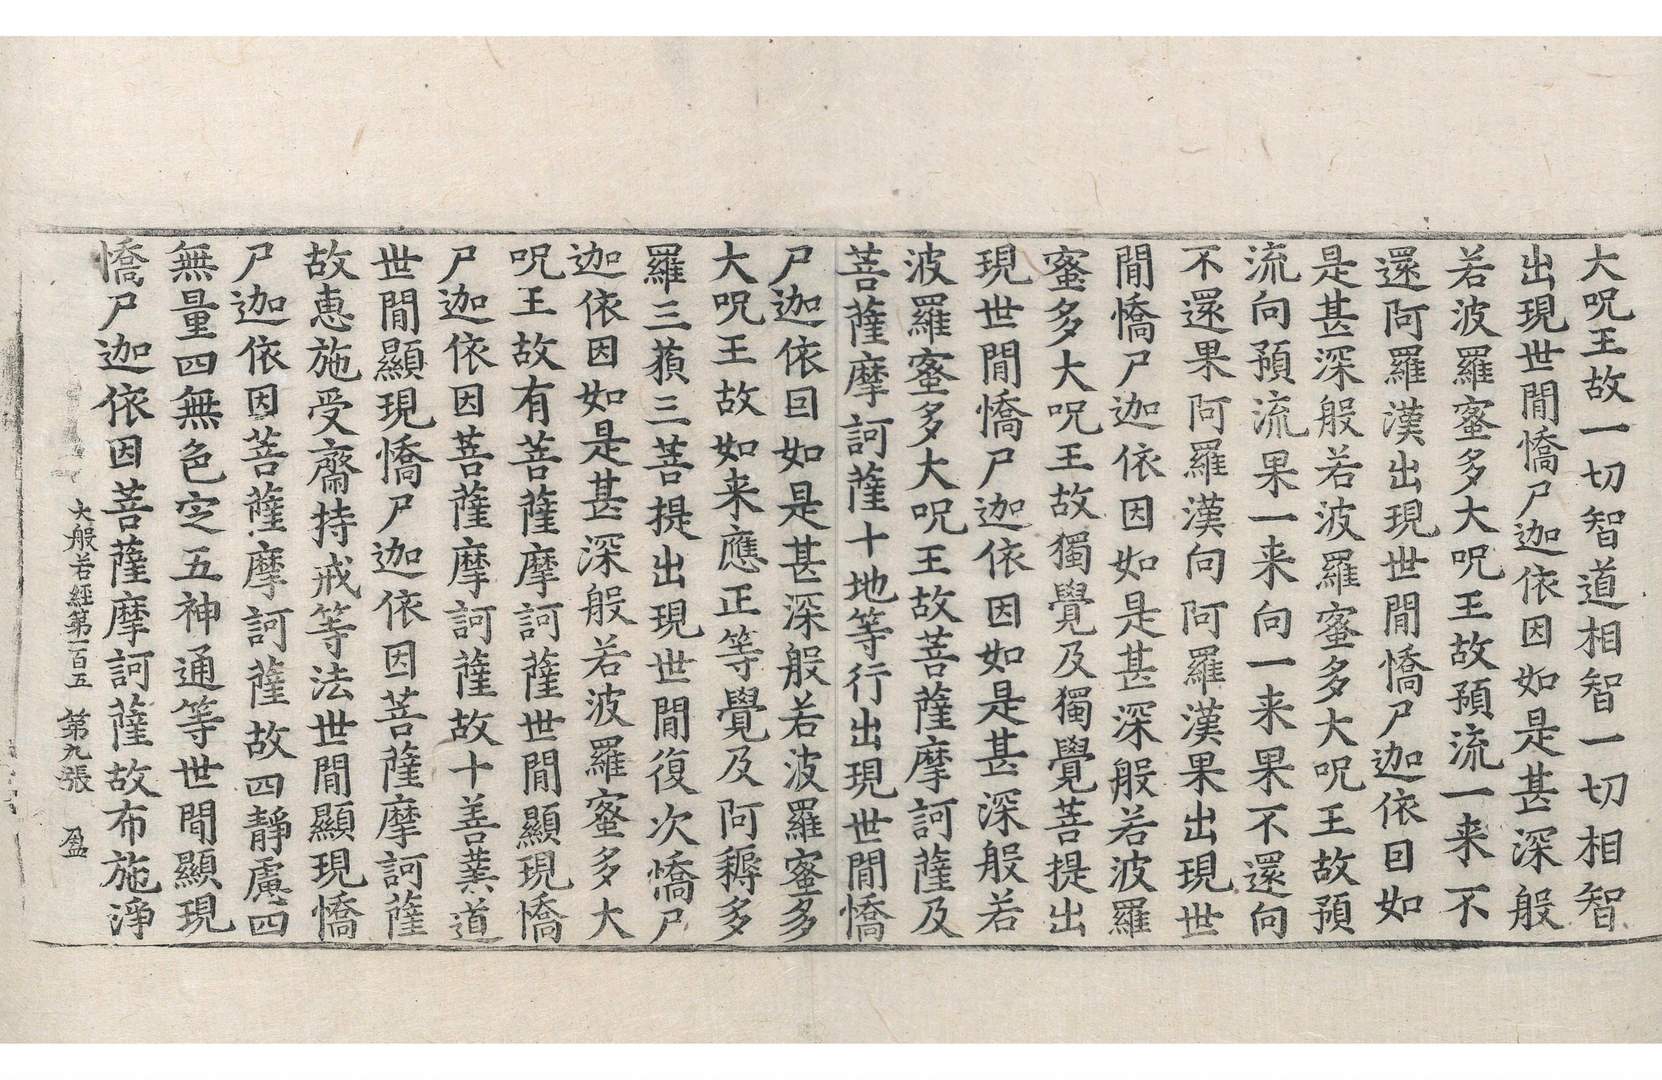 大呪王故一切智道相智一切相智
出現世間憍尸迦依因如是甚深般
若波羅蜜多大呪王故預流一来不
還阿羅漢出現世間憍尸迦依囙如
是甚深般若波羅蜜多大呪王故預
流向預流果一来向一来果不還向
不還果阿羅漢向阿羅漢果出現世
間憍尸迦依因如是甚深般若波羅
蜜多大呪王故獨覺及獨覺菩提出
現世間憍尸迦依因如是甚深般若
波羅蜜多大呪王故菩薩摩訶薩及
菩薩摩訶薩十地等行出現世間憍
尸迦依囙如是甚深般若波羅蜜多
大呪王故如来應正等覺及阿耨多
羅三藐三菩提出現世間復次憍尸
迦依因如是甚深般若波羅蜜多大
呪王故有菩薩摩訶薩世間顯現憍
尸迦依因菩薩摩訶薩故十善業道
世間顯現憍尸迦依因菩薩摩訶薩
故惠施受齋持戒等法世間顯現憍
尸迦依因菩薩摩訶薩故四靜慮四
無量四無色定五神通等世間顯現
憍尸迦依因菩薩摩訶薩故布施淨
大般若經第一百五　第九張　盈